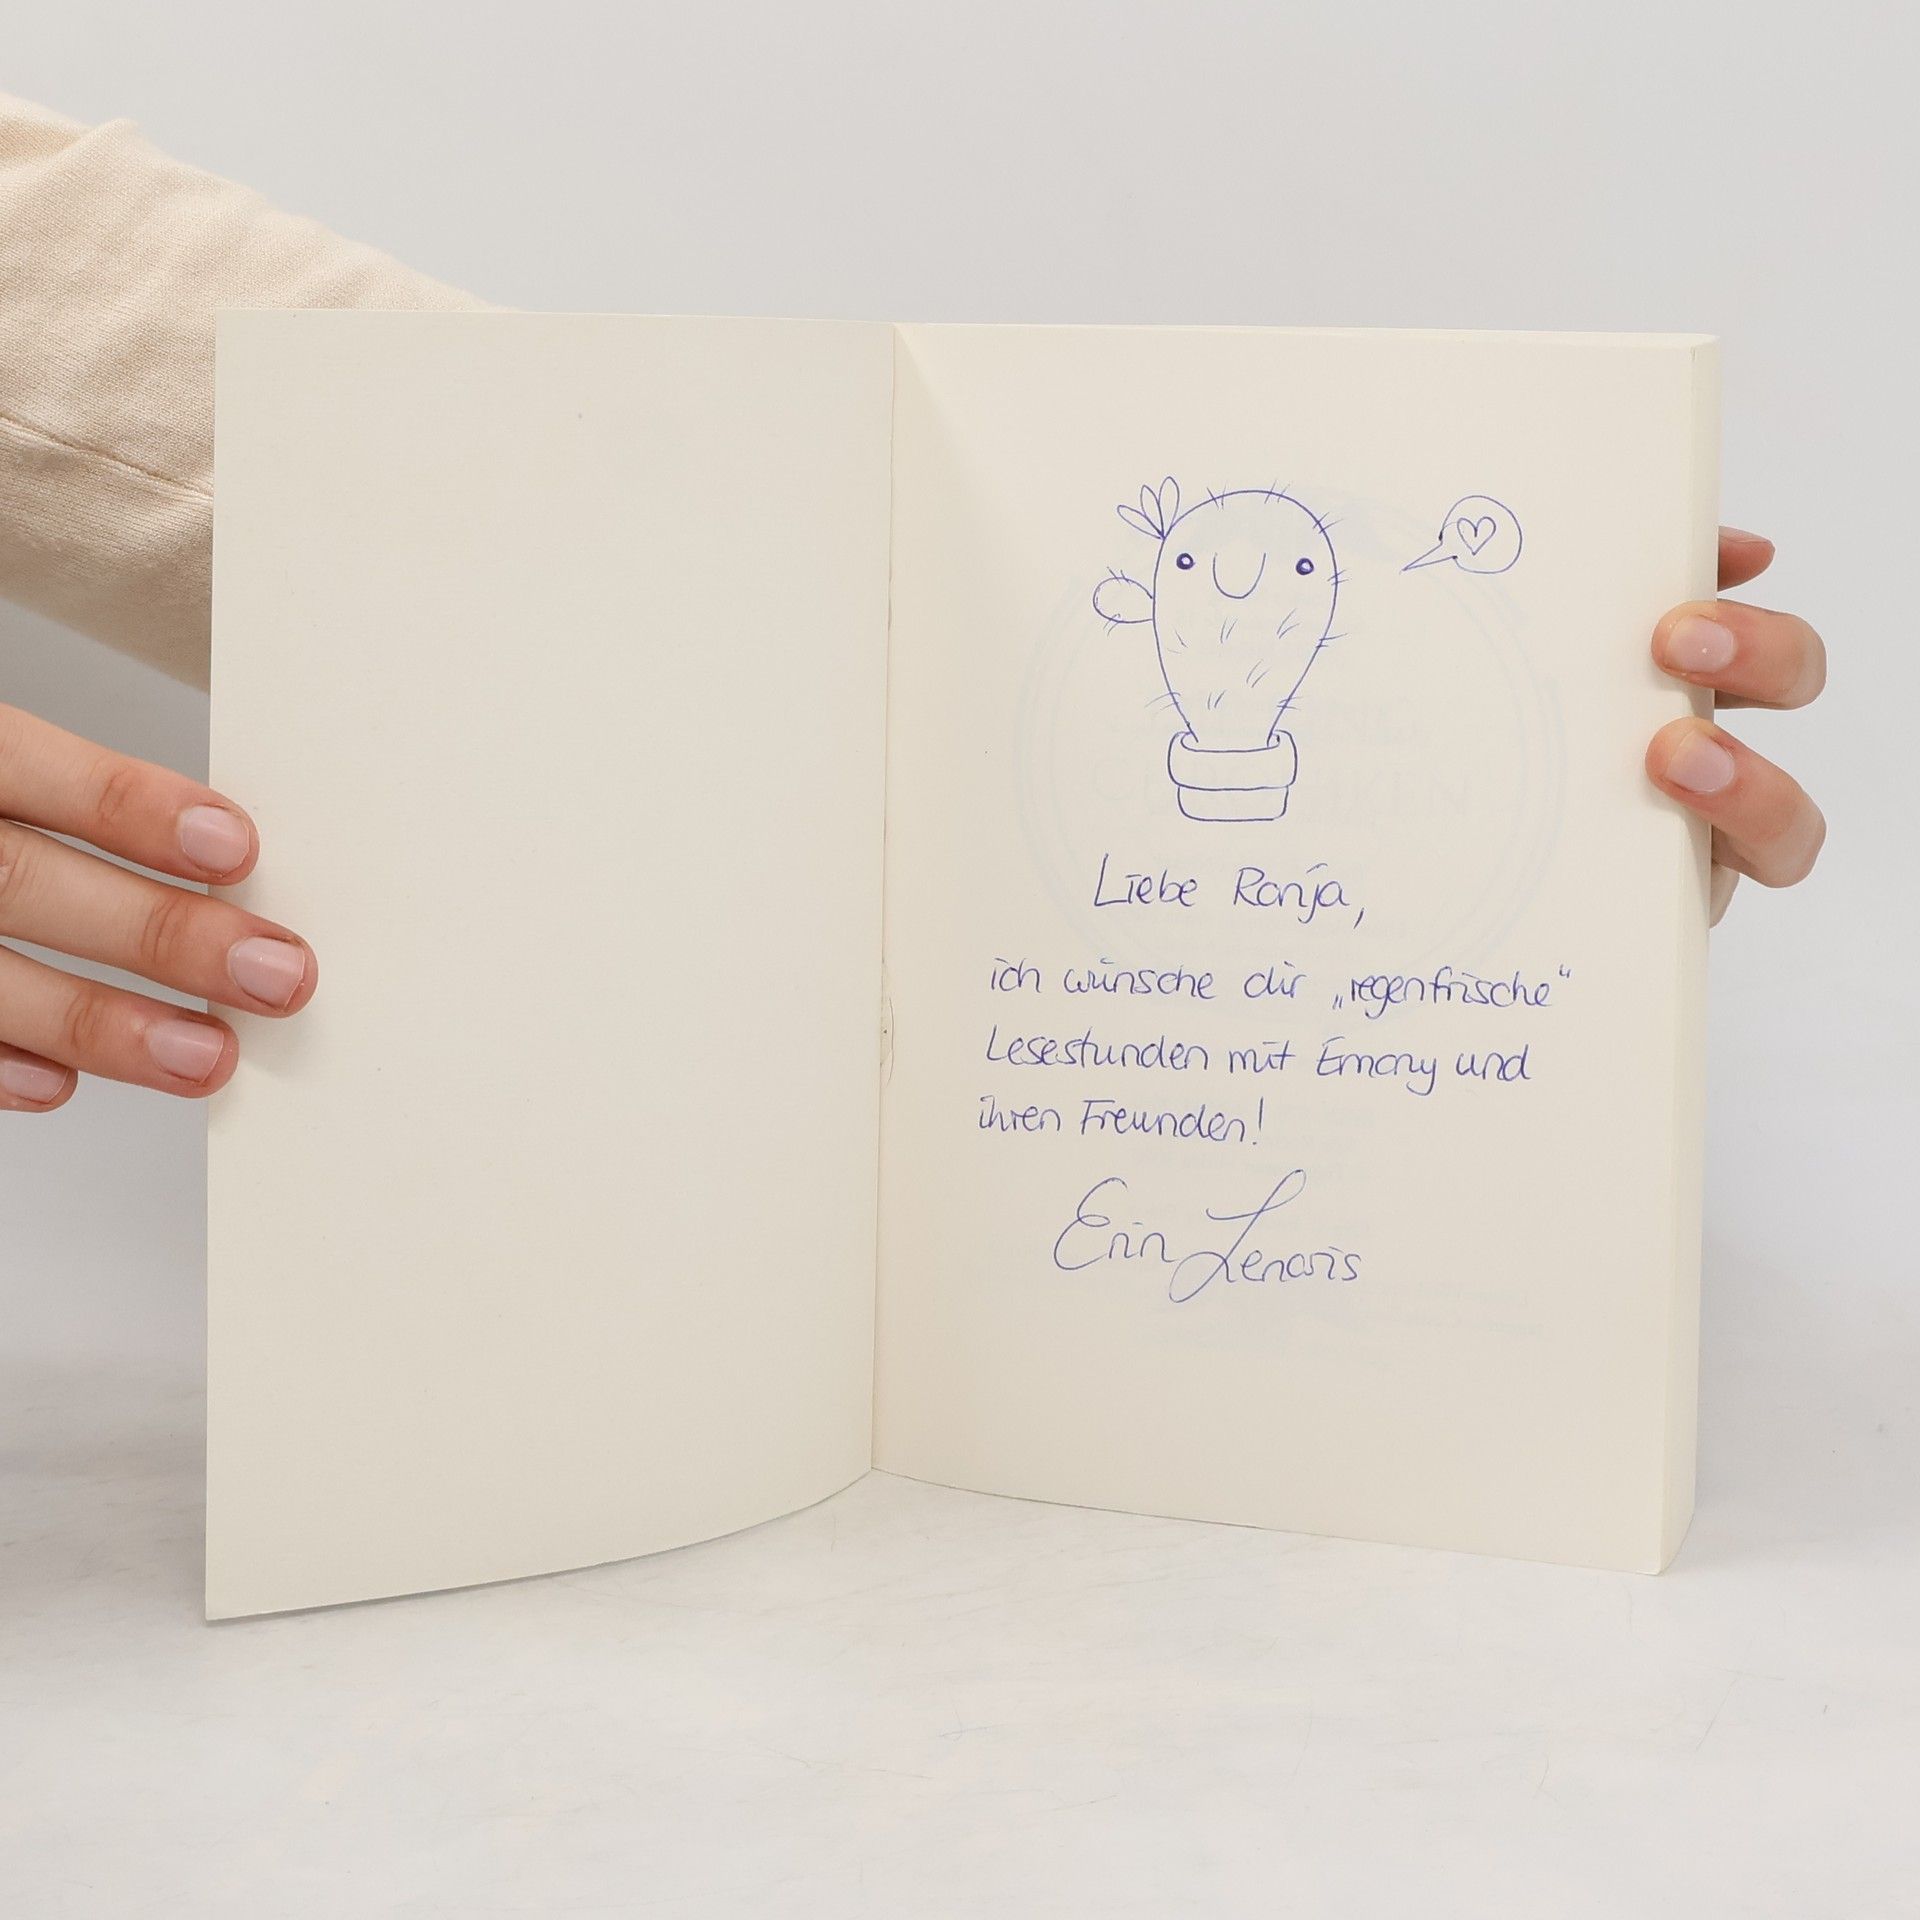 Liebe Ronja,
ich wünsche dir „regenfrische“
Lesestunden mit Emony und
ihren Freunden!
Erin Lenaris